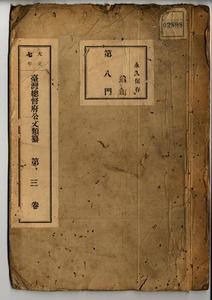 02888
永久保存
第八門
大正
七年
臺灣總督府公文類纂 第三卷